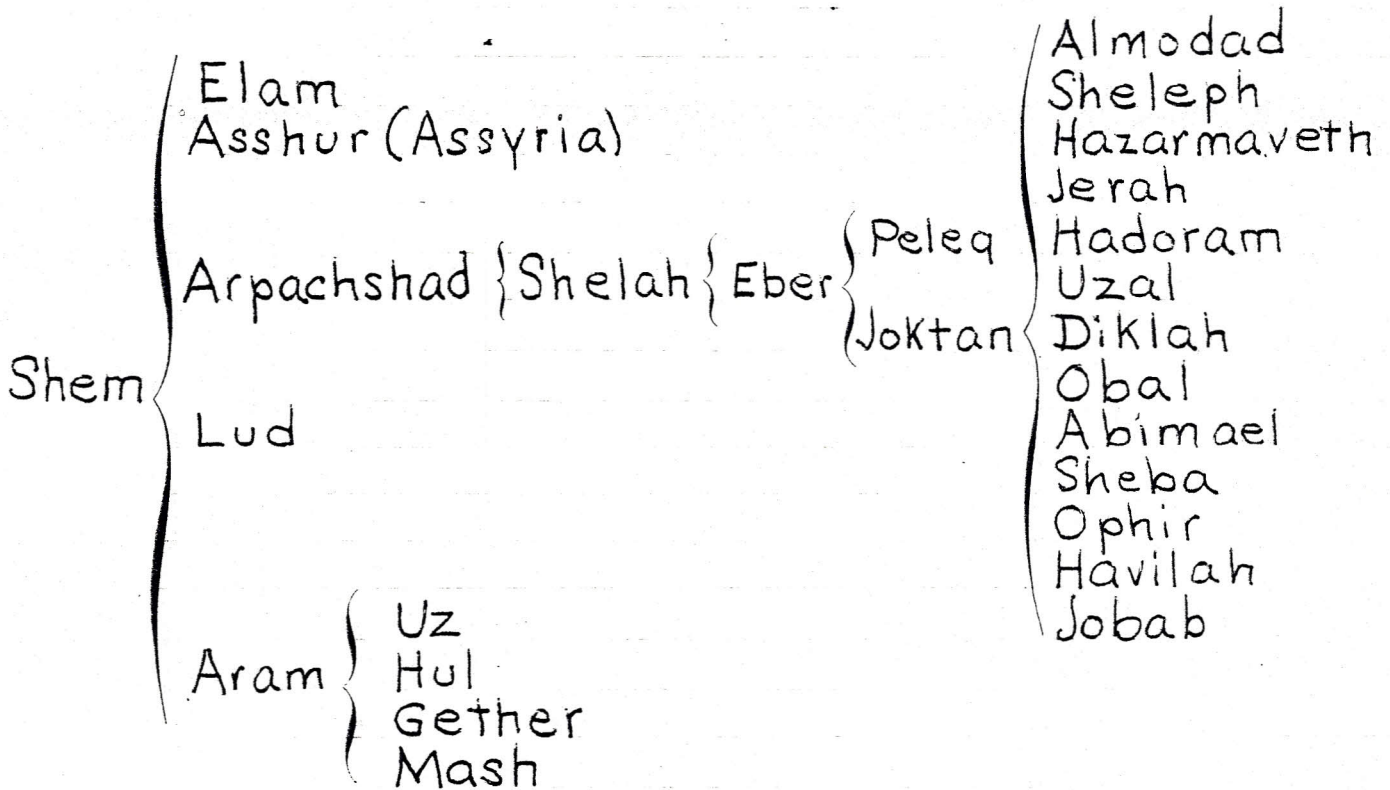 Shem
Elam
Asshur (Assyria)
Arpachshad
Shelah
Eber
Peleg
Joktan
Almodad
Sheleph
Hazarmaveth
Jerah
Hadoram
Uzal
Diklah
Obal
Abimael
Sheba
Ophir
Havilah
Jobab
Lud
Aram
Uz
Hul
Gether
Mash